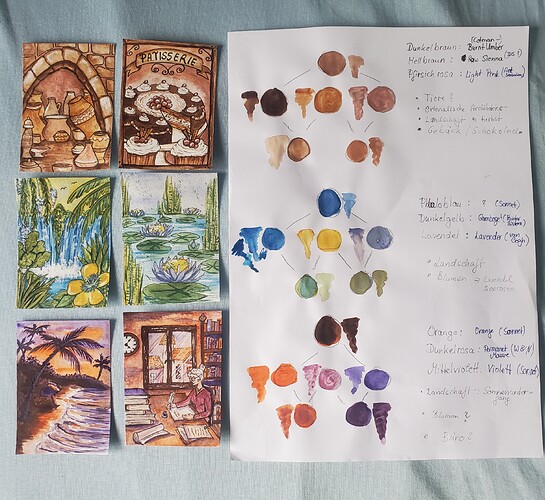 PATISSERIE
(Cotman-)
Dunkelbraun: Burnt Umber
Hellbraun: Raw Sienna
Pfirsich rosa: Light Pink
* Tiere?
* Orientalische Architektur
* Landschaft Herbst
* Gebäck / Schokolade
Phtaloblau: ? (Sennet)
Dunkelgelb:
Lavendel: Lavender (van Gogh)
* Landschaft
* Blumen → Lavendel
Seerosen
Orange: Orange (Sennet)
Dunkelrosa: Permanent (W&N)
Mauve
Mittelviolett: Violett (Sennet)
* Landschaft - Sonnenunter-
gang
* Blumen?
* Büro?